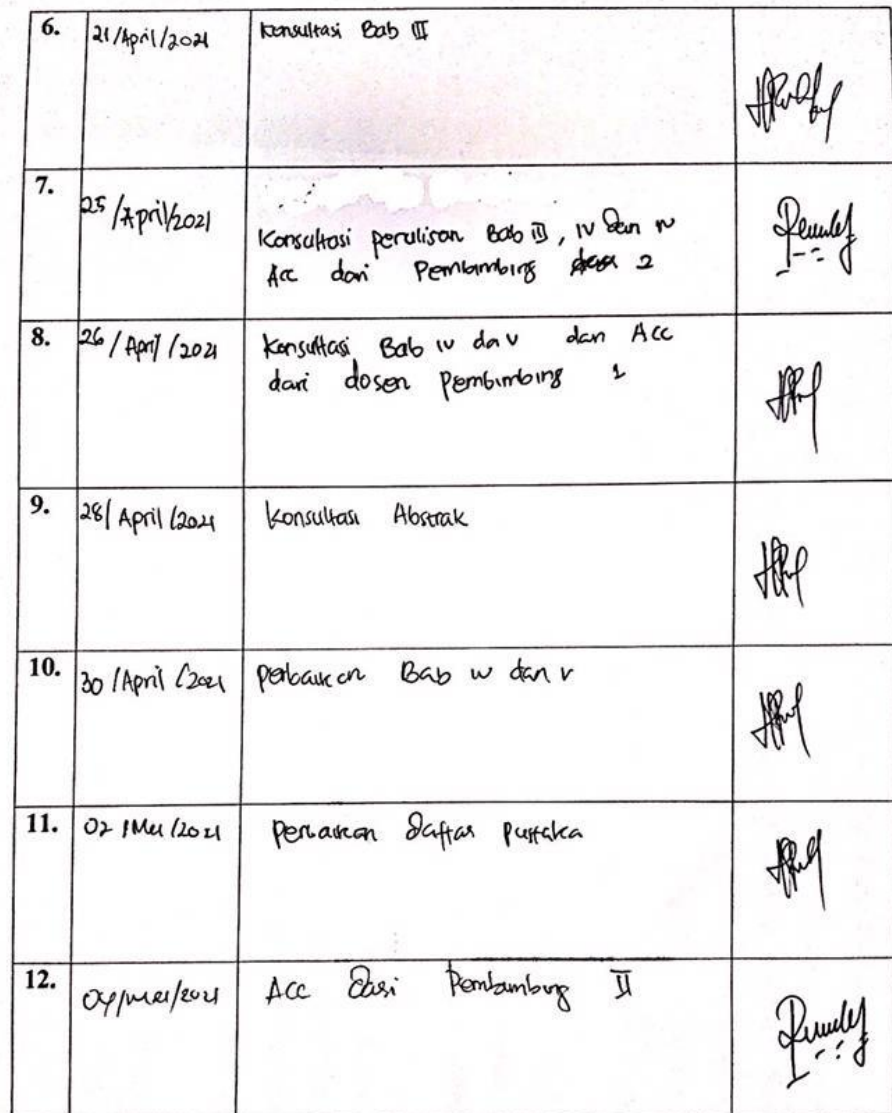 6. 21/April/2021 Konsultasi Bab III
7. 25/April/2021 Konsultasi perulisan Bab III, IV dan IV
Acc dari Pembimbing 2
8. 26/April/2021 Konsultasi Bab IV da V dan Acc
dari dosen Pembimbing 1
9. 28/April/2021 Konsultasi Abstrak
10. 30/April/2021 perbaikan Bab IV dan V
11. 02/Mei/2021 perbaikan daftar pustaka
12. 04/Mei/2021 Acc dari Pembimbing II